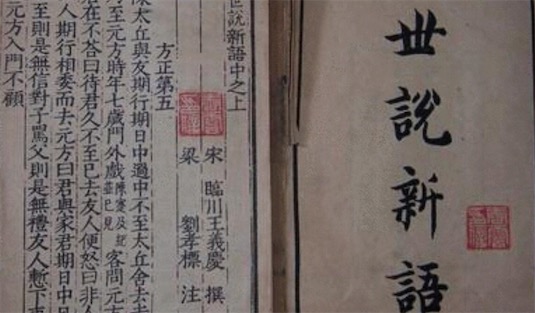 世說新語
世說新語中之上
宋 臨川王義慶 撰
梁 劉孝標 注
方正第五
陳太丘與友期行期日中過中不至太丘舍去去
至元方時年七歲門外戲陳寔及紀並已見客問元
在不荅曰待君久不至已去友人便怒曰非人
人期行相委而去元方曰君與家君期日中日
至則是無信對子罵父則是無禮友人慙下
元方入門不顧